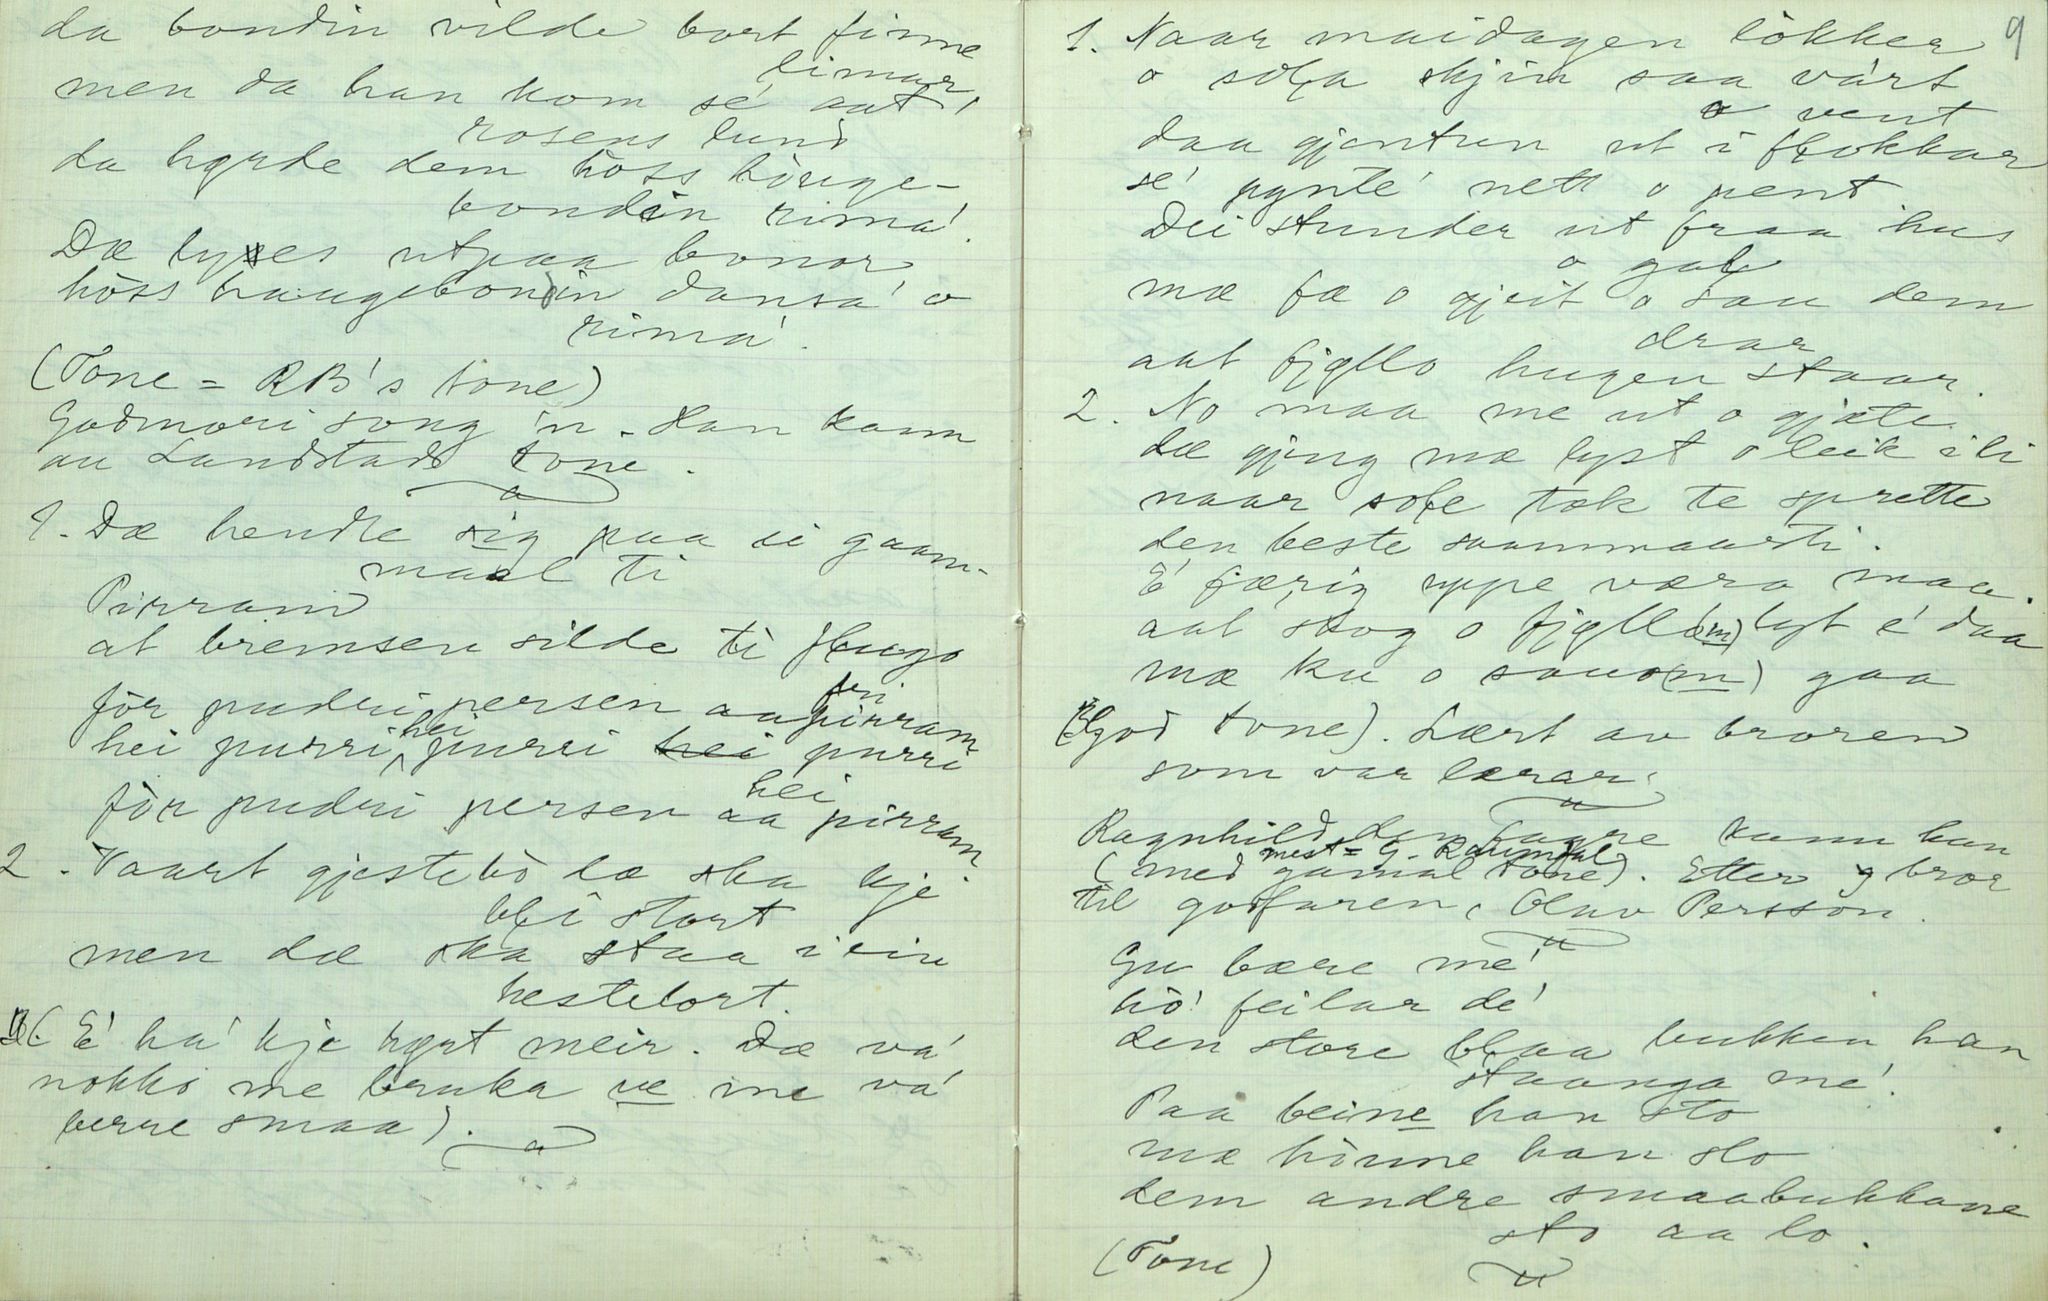 da bondin vilde bort finne
limar,
men da han kom sé aat
rosens lund
da hørde dem höss höuge-
bondin rima'.
Dæ lyes utpaa bonor
höss haugebondin dansa' o
rima'.
(Tone = RB's tone)
Godmori song 'n. Han kann
au Landstads tone.
1. Dæ hendte sig paa ei gaam-
mael ti
Pirram
at bremsen silde ti flugo
för pudri persen aa pirram
hei purri hei purri hei purri
för pudri persen aa hei pirram.
2. Vaart gjestebö læ ska kje
bli stort
men dæ ska staa i ein
hestelort.
(E' ha' kje hørt meir. Dæ va'
nokko me bruka ve me va'
berre smaa).
9
1. Naar maidagen lökker
o sola skjin saa vårt
o vent
daa gjentun ut i flokkar
se' pynte' nett o pent
Dei stunder ut fraa hus
o gal
mæ fæ o gjeit o sau dem
drar
aat fjøllo hugen staar.
2. No maa me ut o gjæte
dæ gjeng mæ lyst o leik i li
naar sole tok te sprette
den beste saammaarsti.
E' færig uppe væra maa.
aat skog o fjøllo(m) lyt é daa
mæ ku o sauo(m) gaa
(God tone). Lært av broren
som var lærar.
Ragnhild den fagre kann han
mest = G. Raundal
(med gamal tone). Etter bror
til godfaren, Olav Persson.
Gu bære me'
hö' feilar de'
den store blaa bukken han
staanga me'.
Paa beine han sto
mæ hönne han slo
dem andre smaabukkane
sto aa lo.
(Tone)